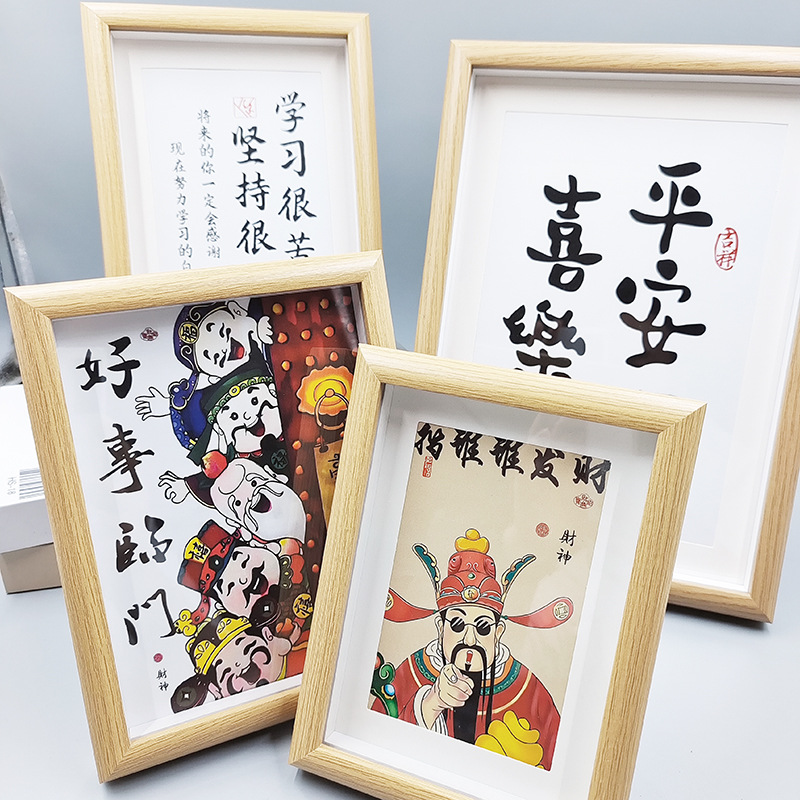 学习很苦
坚持很
将来的你一定会感谢
现在努力学习的
平安
喜樂
吉祥
好事臨门
財神
指谁谁发财
財神